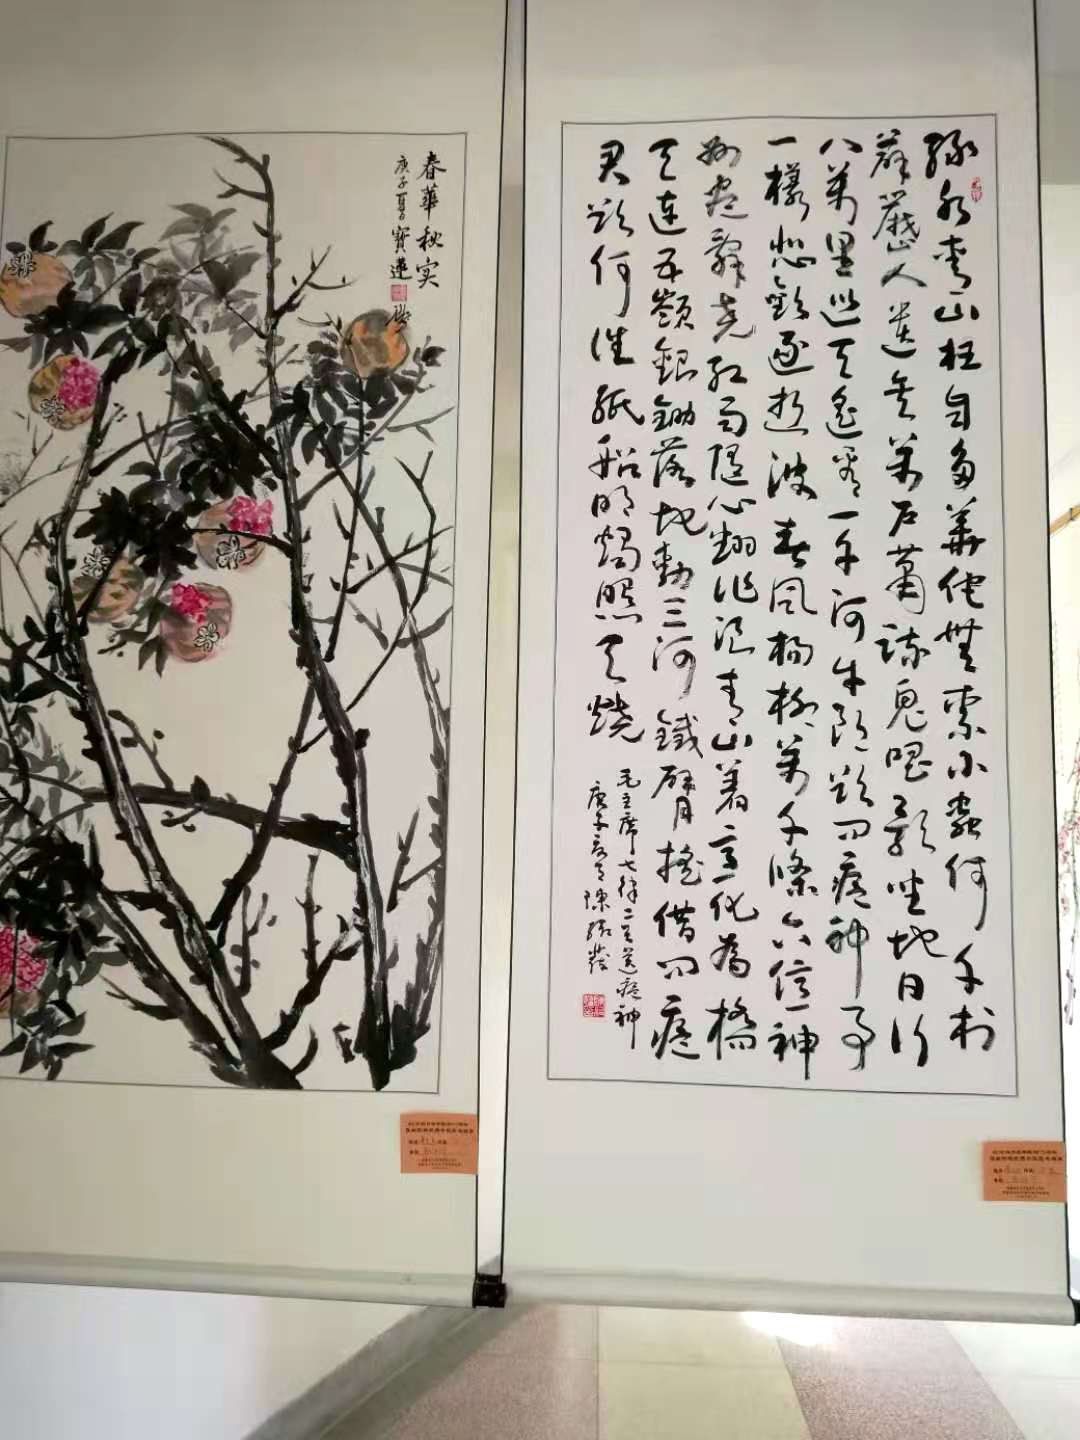 春華秋实
庚子夏寶蓮
綠水青山枉自多華佗無奈小蟲何千村
薜荔人遺矢萬戶蕭疏鬼唱歌坐地日行
八萬里巡天遙看一千河牛郎欲問瘟神事
一樣悲歡逐逝波春風楊柳萬千條六億神
州盡舜堯紅雨隨心翻作浪青山着意化為橋
天連五嶺銀鋤落地動三河鐵臂搖借問瘟
君欲何往紙船明燭照天燒
毛主席七律二首送瘟神
庚子